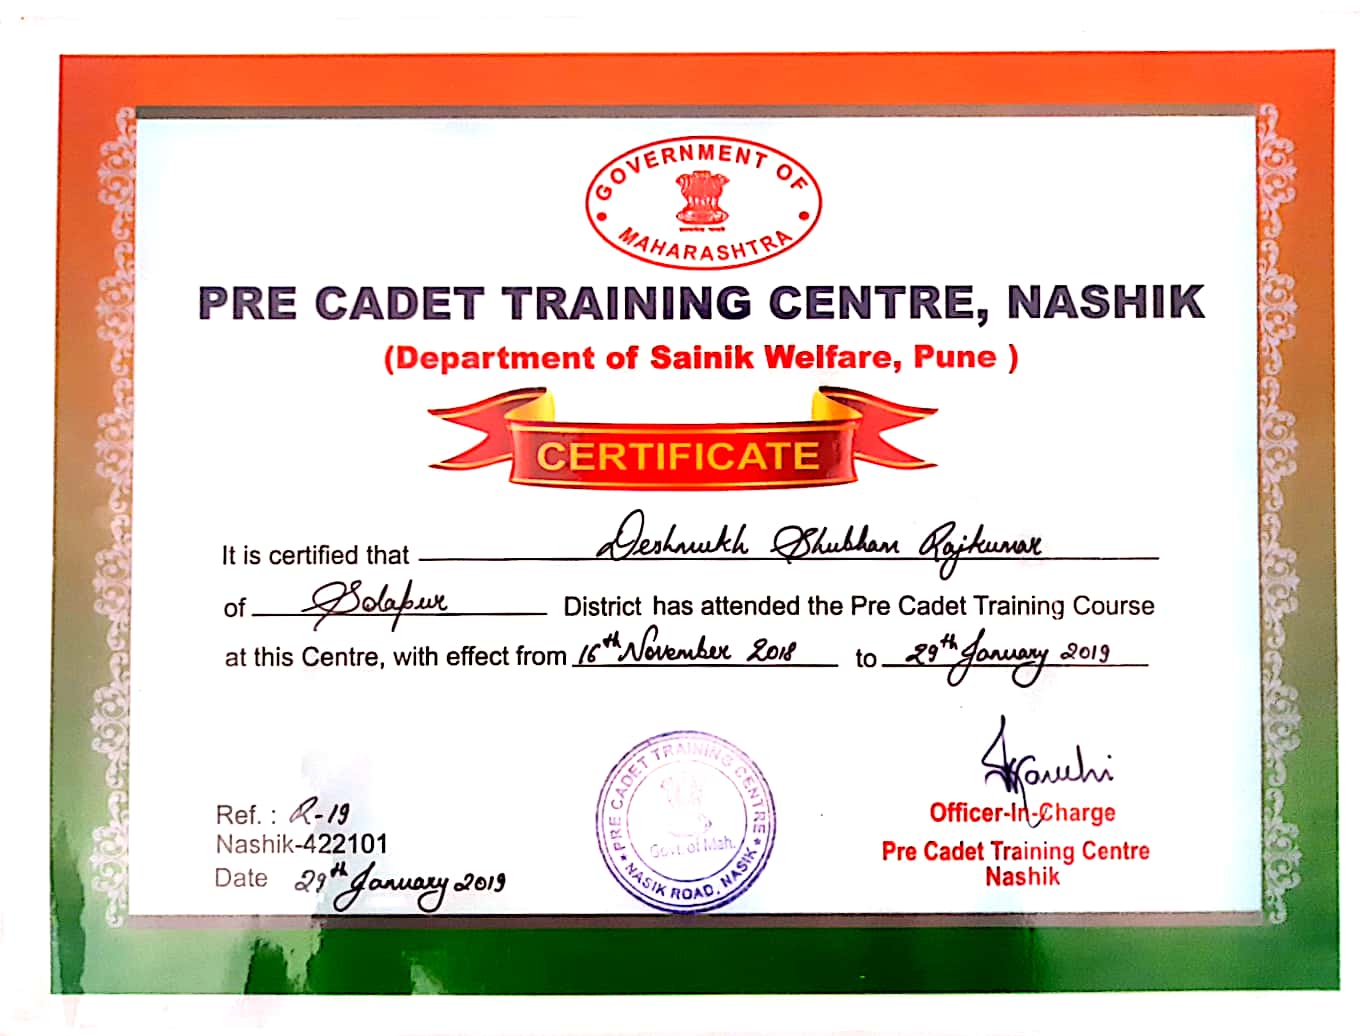 GOVERNMENT OF
MAHARASHTRA
PRE CADET TRAINING CENTRE, NASHIK
(Department of Sainik Welfare, Pune )
CERTIFICATE
It is certified that Deshmukh Shubham Rajkumar
of Solapur District has attended the Pre Cadet Training Course
at this Centre, with effect from 16th November 2018 to 29th January 2019
Ref. : R-19
Nashik-422101
Date 29th January 2019
PRE CADET TRAINING CENTRE
Govt. of Mah.
NASIK ROAD, NASIK
Officer-In-Charge
Pre Cadet Training Centre
Nashik